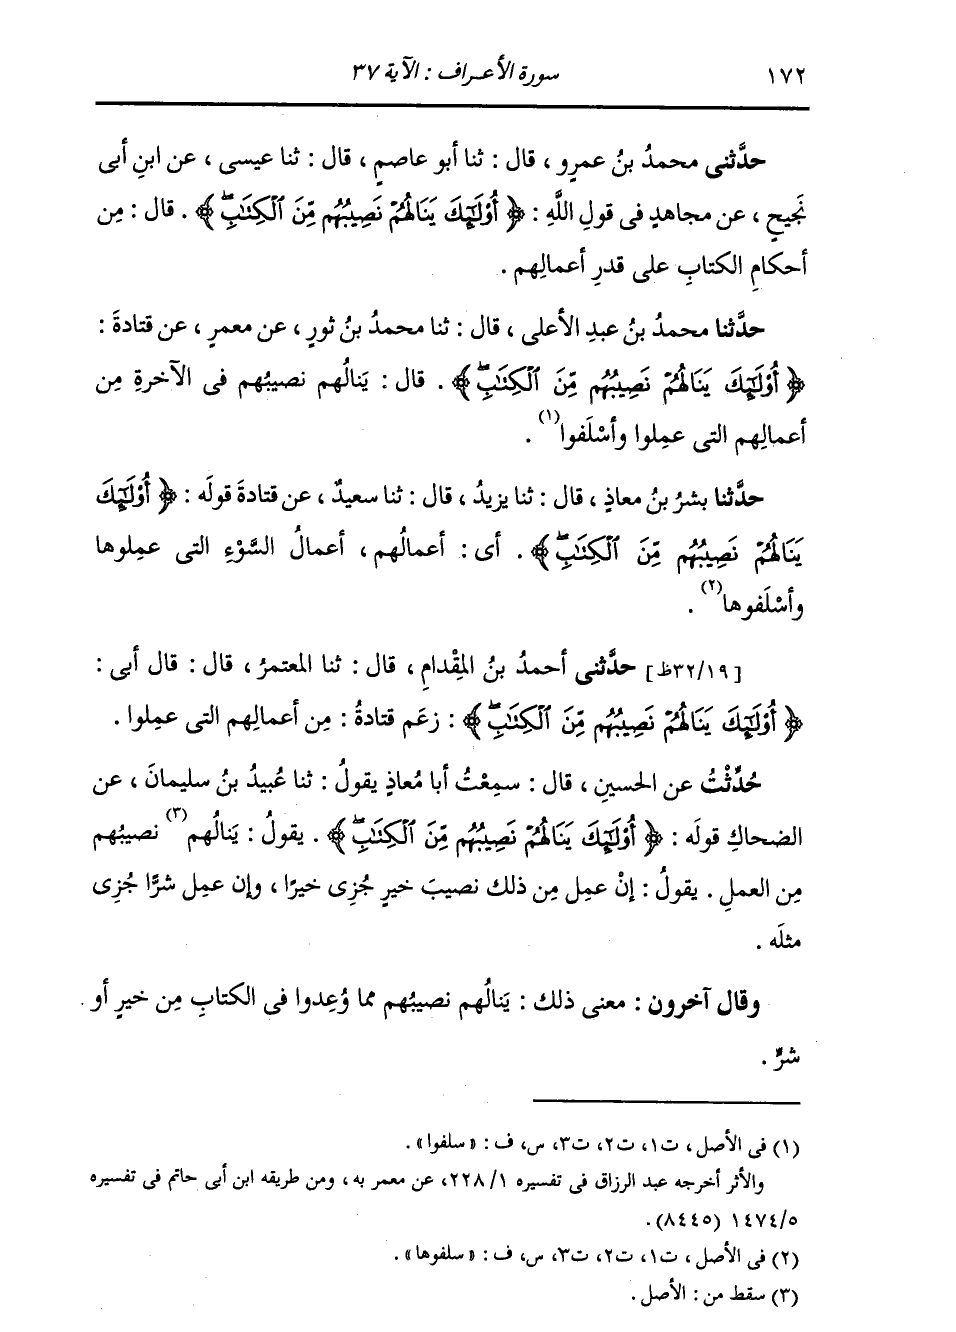 ١٧٢ سورة الأعراف : الآية ٣٧
حدَّثنى محمدُ بنُ عمرٍو ، قال : ثنا أبو عاصمٍ ، قال : ثنا عيسى ، عن ابنِ أبى
نَجيحٍ ، عن مجاهدٍ فى قولِ اللَّهِ : ﴿ أُوْلَٰٓئِكَ يَنَالُهُمْ نَصِيبُهُم مِّنَ ٱلْكِتَٰبِۖ ﴾ . قال : مِن
أحكامِ الكتابِ على قدرِ أعمالِهم .
حدَّثنا محمدُ بنُ عبدِ الأعلى ، قال : ثنا محمدُ بنُ ثورٍ ، عن معمرٍ ، عن قتادةَ :
﴿ أُوْلَٰٓئِكَ يَنَالُهُمْ نَصِيبُهُم مِّنَ ٱلْكِتَٰبِۖ ﴾ . قال : يَنالُهم نصيبُهم فى الآخرةِ مِن
أعمالِهم التى عمِلوا وأسْلَفوا(١) .
حدَّثنا بشرُ بنُ معاذٍ ، قال : ثنا يزيدُ ، قال : ثنا سعيدٌ ، عن قتادةَ قولَه : ﴿ أُوْلَٰٓئِكَ
يَنَالُهُمْ نَصِيبُهُم مِّنَ ٱلْكِتَٰبِۖ ﴾ . أى : أعمالُهم ، أعمالُ السَّوْءِ التى عمِلوها
وأسْلَفوها(٢) .
[٣٢/١٩ظ] حدَّثنى أحمدُ بنُ المِقْدامِ ، قال : ثنا المعتمرُ ، قال : قال أبى :
﴿ أُوْلَٰٓئِكَ يَنَالُهُمْ نَصِيبُهُم مِّنَ ٱلْكِتَٰبِۖ ﴾ : زعَم قتادةُ : مِن أعمالِهم التى عمِلوا .
حُدِّثْتُ عن الحسينِ ، قال : سمِعْتُ أبا معاذٍ يقولُ : ثنا عُبيدُ بنُ سليمانَ ، عن
الضحاكِ قولَه : ﴿ أُوْلَٰٓئِكَ يَنَالُهُمْ نَصِيبُهُم مِّنَ ٱلْكِتَٰبِۖ ﴾ . يقولُ : يَنالُهم(٣) نصيبُهم
مِن العملِ . يقولُ : إنْ عمِل مِن ذلك نصيبَ خيرٍ جُزِى خيرًا ، وإن عمِل شرًّا جُزِى
مثلَه .
وقال آخرون : معنى ذلك : يَنالُهم نصيبُهم مما وُعِدوا فى الكتابِ مِن خيرٍ أو
شرٍّ .
(١) فى الأصل ، ت١، ت٢، ت٣، س، ف : « سلفوا » .
والأثر أخرجه عبد الرزاق فى تفسيره ٢٢٨/١، عن معمر به ، ومن طريقه ابن أبى حاتم فى تفسيره
١٤٧٤/٥ (٨٤٤٥).
(٢) فى الأصل ، ت١، ت٢، ت٣، س، ف : « سلفوها » .
(٣) سقط من : الأصل .